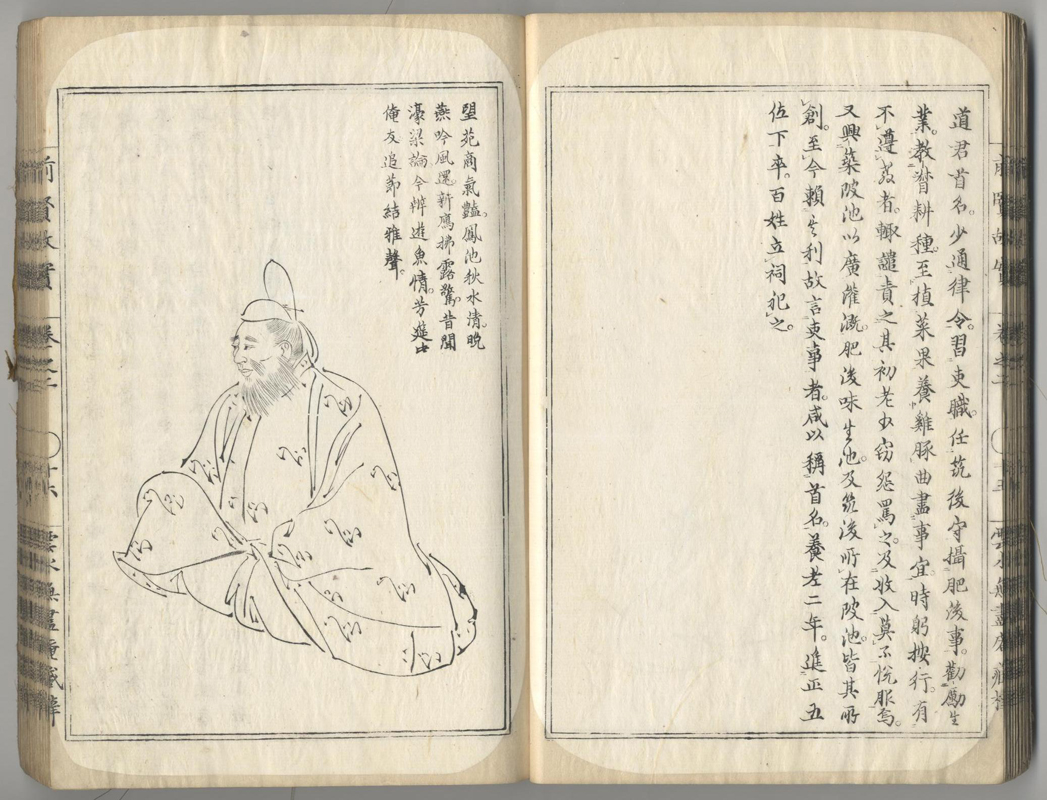 道君首名。少通律令。習吏職。任筑後守攝肥後事。勸勵生
業。教督耕種。至植菜果養雞豚曲盡事宜時躬按行。有
不遵教者。輙譴責之其初老少窃怨罵之。及收入莫不悅服焉。
又興築陂池以廣灌漑。肥後味生池。及筑後所在陂池。皆其所
創。至今賴其利故言吏事者。咸以稱首名。養老二年。進正五
位下卒。百姓立祠祀之。
望苑商氣豔。鳳池秋水清。晩
燕吟風還新鴈拂露驚。昔聞
濠梁論今辨遊魚情。芳筵此
僚友追節結雅聲。
前賢故實
卷之二
十六
雲水無盡庵藏梓